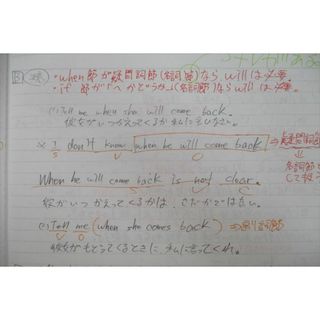 ・when節が疑問詞節(名詞節)なら will は必要.
・if 節が「〜かどうか」(名詞節)なら will は必要.
(1) Tell me when she will come back.
彼女がいつかえってくるか私に言いなさい.
※ I don't know when he will come back ⇒ 疑問詞節
S V O
名詞節と
して扱う
When he will come back is not clear.
S V C
彼がいつかえってくるかは、さだかではない.
(1) Tell me (when she comes back) ⇒副詞節
V O
彼女がもどってくるときに私に言ってくれ.